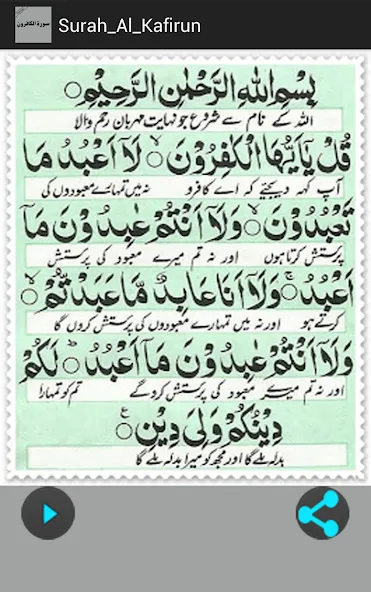 سورة الكافرون
Surah_Al_Kafirun
بِسْمِ اللّٰهِ الرَّحْمٰنِ الرَّحِيْمِ ○
اللہ کے نام سے شروع جو نہایت مہربان رحم والا
قُلْ يٰۤاَيُّهَا الْكٰفِرُوْنَ ○ لَاۤ اَعْبُدُ مَا
آپ کہہ دیجئیے کہ اے کافرو نہ میں تمہارے معبودوں کی
تَعْبُدُوْنَ ○ وَلَاۤ اَنْتُمْ عٰبِدُوْنَ مَاۤ
پرستش کرتا ہوں اور نہ تم میرے معبود کی پرستش
اَعْبُدُ ○ وَلَاۤ اَنَا عَابِدٌ مَّا عَبَدْتُّمْ ○
کرتے ہو اور نہ میں تمہارے معبودوں کی پرستش کروں گا
وَلَاۤ اَنْتُمْ عٰبِدُوْنَ مَاۤ اَعْبُدُ ○ لَكُمْ
اور نہ تم میرے معبود کی پرستش کروگے تم کو تمہارا
دِيْنُكُمْ وَلِىَ دِيْنِ ○
بدلہ ملے گا اور مجھ کو میرا بدلہ ملے گا